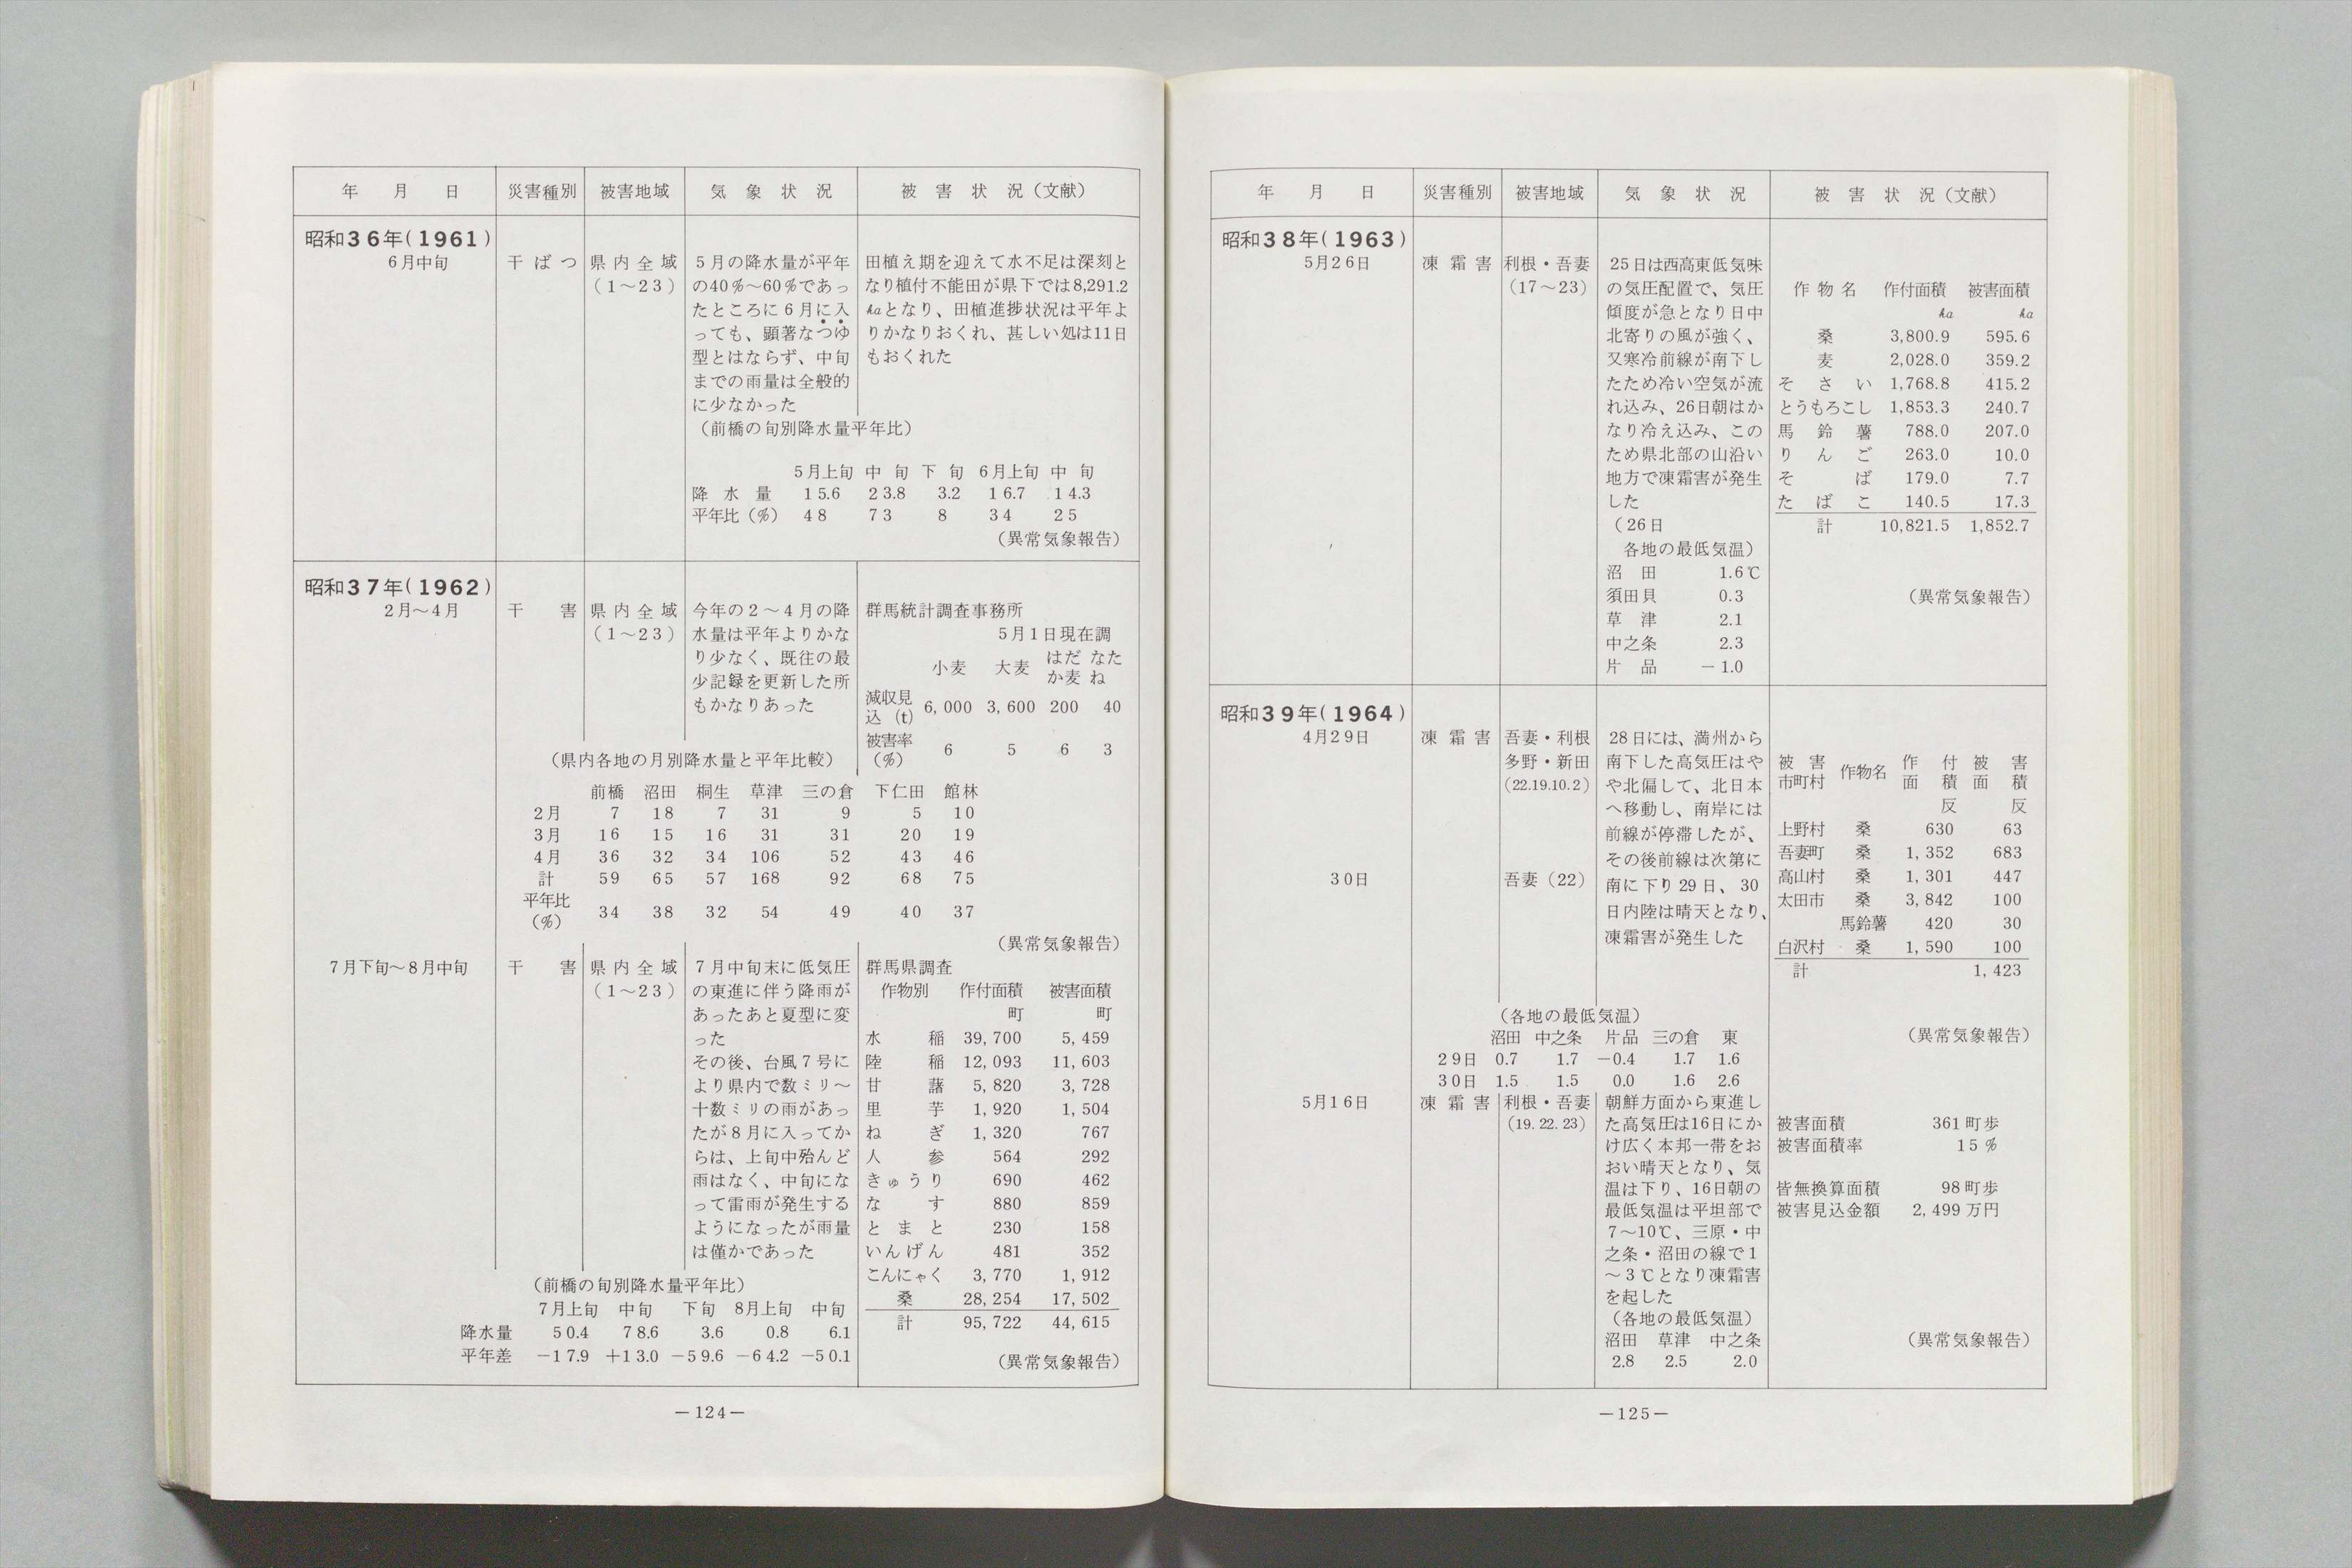 年　月　日　災害種別　被害地域　気象状況　被害状況（文献）
昭和36年(1961)
6月中旬　干ばつ　県内全域
(1～23)
5月の降水量が平年
の40％～60％であっ
たところに6月に入
っても、顕著なつゆ
型とはならず、中旬
までの雨量は全般的
に少なかった
田植え期を迎えて水不足は深刻と
なり植付不能田が県下では8,291.2
haとなり、田植進捗状況は平年よ
りかなりおくれ、甚しい処は11日
もおくれた
（前橋の旬別降水量平年比）
5月上旬　中旬　下旬　6月上旬　中旬
降水量　15.6　23.8　3.2　16.7　14.3
平年比（％）　48　73　8　34　25
（異常気象報告）
昭和37年(1962)
2月～4月　干害　県内全域
(1～23)
今年の2～4月の降
水量は平年よりかな
り少なく、既往の最
少記録を更新した所
もかなりあった
群馬統計調査事務所
5月1日現在調
小麦　大麦　はだか麦　なたね
減収見込（t）　6,000　3,600　200　40
被害率（％）　6　5　6　3
（県内各地の月別降水量と平年比較）
前橋　沼田　桐生　草津　三の倉　下仁田　館林
2月　7　18　7　31　9　5　10
3月　16　15　16　31　31　20　19
4月　36　32　34　106　52　43　46
計　59　65　57　168　92　68　75
平年比（％）　34　38　32　54　49　40　37
（異常気象報告）
7月下旬～8月中旬　干害　県内全域
(1～23)
7月中旬末に低気圧
の東進に伴う降雨が
あったあと夏型に変
った
その後、台風7号に
より県内で数ミリ～
十数ミリの雨があっ
たが8月に入ってか
らは、上旬中殆んど
雨はなく、中旬にな
って雷雨が発生する
ようになったが雨量
は僅かであった
（前橋の旬別降水量平年比）
7月上旬　中旬　下旬　8月上旬　中旬
降水量　50.4　78.6　3.6　0.8　6.1
平年差　－17.9　＋13.0　－59.6　－64.2　－50.1
群馬県調査
作物別　作付面積　被害面積
町　町
水稲　39,700　5,459
陸稲　12,093　11,603
甘藷　5,820　3,728
里芋　1,920　1,504
ねぎ　1,320　767
人参　564　292
きゅうり　690　462
なす　880　859
とまと　230　158
いんげん　481　352
こんにゃく　3,770　1,912
桑　28,254　17,502
計　95,722　44,615
（異常気象報告）
－124－
年　月　日　災害種別　被害地域　気象状況　被害状況（文献）
昭和38年(1963)
5月26日　凍霜害　利根・吾妻
(17～23)
25日は西高東低気味
の気圧配置で、気圧
傾度が急となり日中
北寄りの風が強く、
又寒冷前線が南下し
たため冷い空気が流
れ込み、26日朝はか
なり冷え込み、この
ため県北部の山沿い
地方で凍霜害が発生
した
（26日
各地の最低気温）
沼田　1.6℃
須田貝　0.3
草津　2.1
中之条　2.3
片品　－1.0
作物名　作付面積　被害面積
ha　ha
桑　3,800.9　595.6
麦　2,028.0　359.2
そさい　1,768.8　415.2
とうもろこし　1,853.3　240.7
馬鈴薯　788.0　207.0
りんご　263.0　10.0
そば　179.0　7.7
たばこ　140.5　17.3
計　10,821.5　1,852.7
（異常気象報告）
昭和39年(1964)
4月29日　凍霜害　吾妻・利根
多野・新田
(22.19.10.2)
30日　吾妻（22）
28日には、満州から
南下した高気圧はや
や北偏して、北日本
へ移動し、南岸には
前線が停滞したが、
その後前線は次第に
南に下り29日、30
日内陸は晴天となり、
凍霜害が発生した
被害市町村　作物名　作付面積　被害面積
反　反
上野村　桑　630　63
吾妻町　桑　1,352　683
高山村　桑　1,301　447
太田市　桑　3,842　100
馬鈴薯　420　30
白沢村　桑　1,590　100
計　1,423
（各地の最低気温）
沼田　中之条　片品　三の倉　東
29日　0.7　1.7　－0.4　1.7　1.6
30日　1.5　1.5　0.0　1.6　2.6
（異常気象報告）
5月16日　凍霜害　利根・吾妻
(19.22.23)
朝鮮方面から東進し
た高気圧は16日にか
け広く本邦一帯をお
おい晴天となり、気
温は下り、16日朝の
最低気温は平坦部で
7～10℃、三原・中
之条・沼田の線で1
～3℃となり凍霜害
を起した
（各地の最低気温）
沼田　草津　中之条
2.8　2.5　2.0
被害面積　361町歩
被害面積率　15％
皆無換算面積　98町歩
被害見込金額　2,499万円
（異常気象報告）
－125－